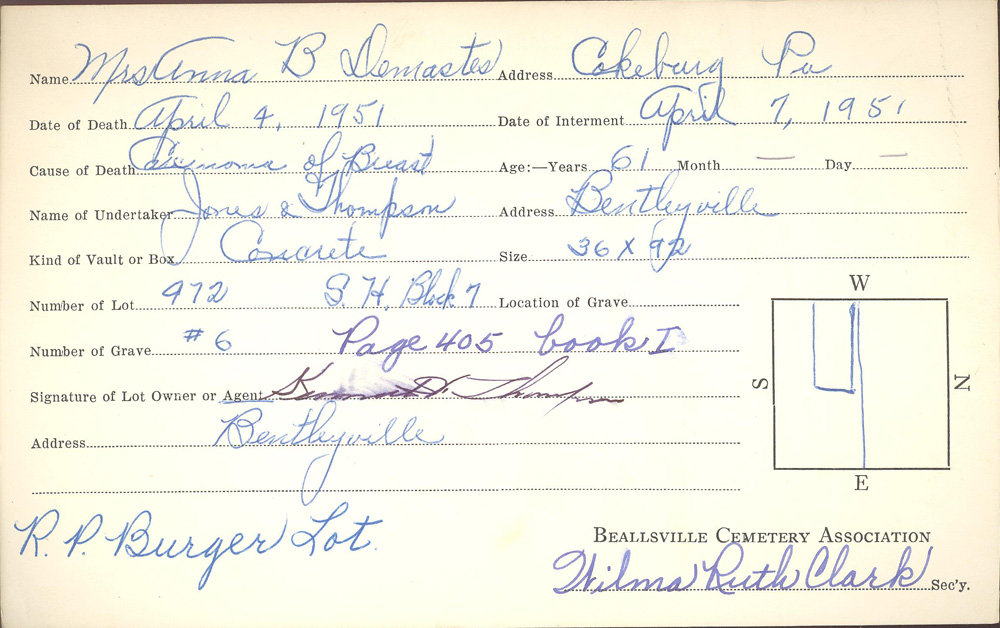 Name Mrs Anna B Demastes Address Cokeburg Pa
Date of Death April 4, 1951 Date of Interment April 7, 1951
Cause of Death Carcinoma of Breast Age:—Years 61 Month — Day —
Name of Undertaker Jones & Thompson Address Bentleyville
Kind of Vault or Box Concrete Size 36 X 92
Number of Lot 972 S. H. Block 7 Location of Grave
Number of Grave #6 Page 405 book I
Signature of Lot Owner or Agent Kenneth H Thompson
Address Bentleyville
W
S
N
E
R. P. Burger Lot.
BEALLSVILLE CEMETERY ASSOCIATION
Wilma Ruth Clark Sec'y.